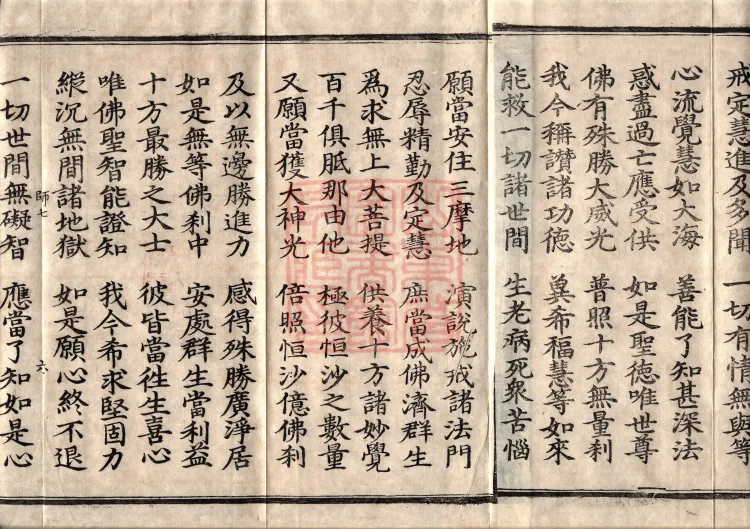 戒定慧進及多聞 一切有情無與等
心流覺慧如大海 善能了知甚深法
惑盡過亡應受供 如是聖德唯世尊
佛有殊勝大威光 普照十方無量刹
我今稱讚諸功德 冀希福慧等如來
能救一切諸世間 生老病死衆苦惱
願當安住三摩地 演說施戒諸法門
忍辱精勤及定慧 庶當成佛濟群生
爲求無上大菩提 供養十方諸妙覺
百千俱胝那由他 極彼恒沙之數量
又願當獲大神光 倍照恒沙億佛刹
及以無邊勝進力 感得殊勝廣淨居
如是無等佛刹中 安處群生當利益
十方最勝之大士 彼皆當往生喜心
唯佛聖智能證知 我今希求堅固力
縱沉無間諸地獄 如是願心終不退
師七 六
一切世間無礙智 應當了知如是心